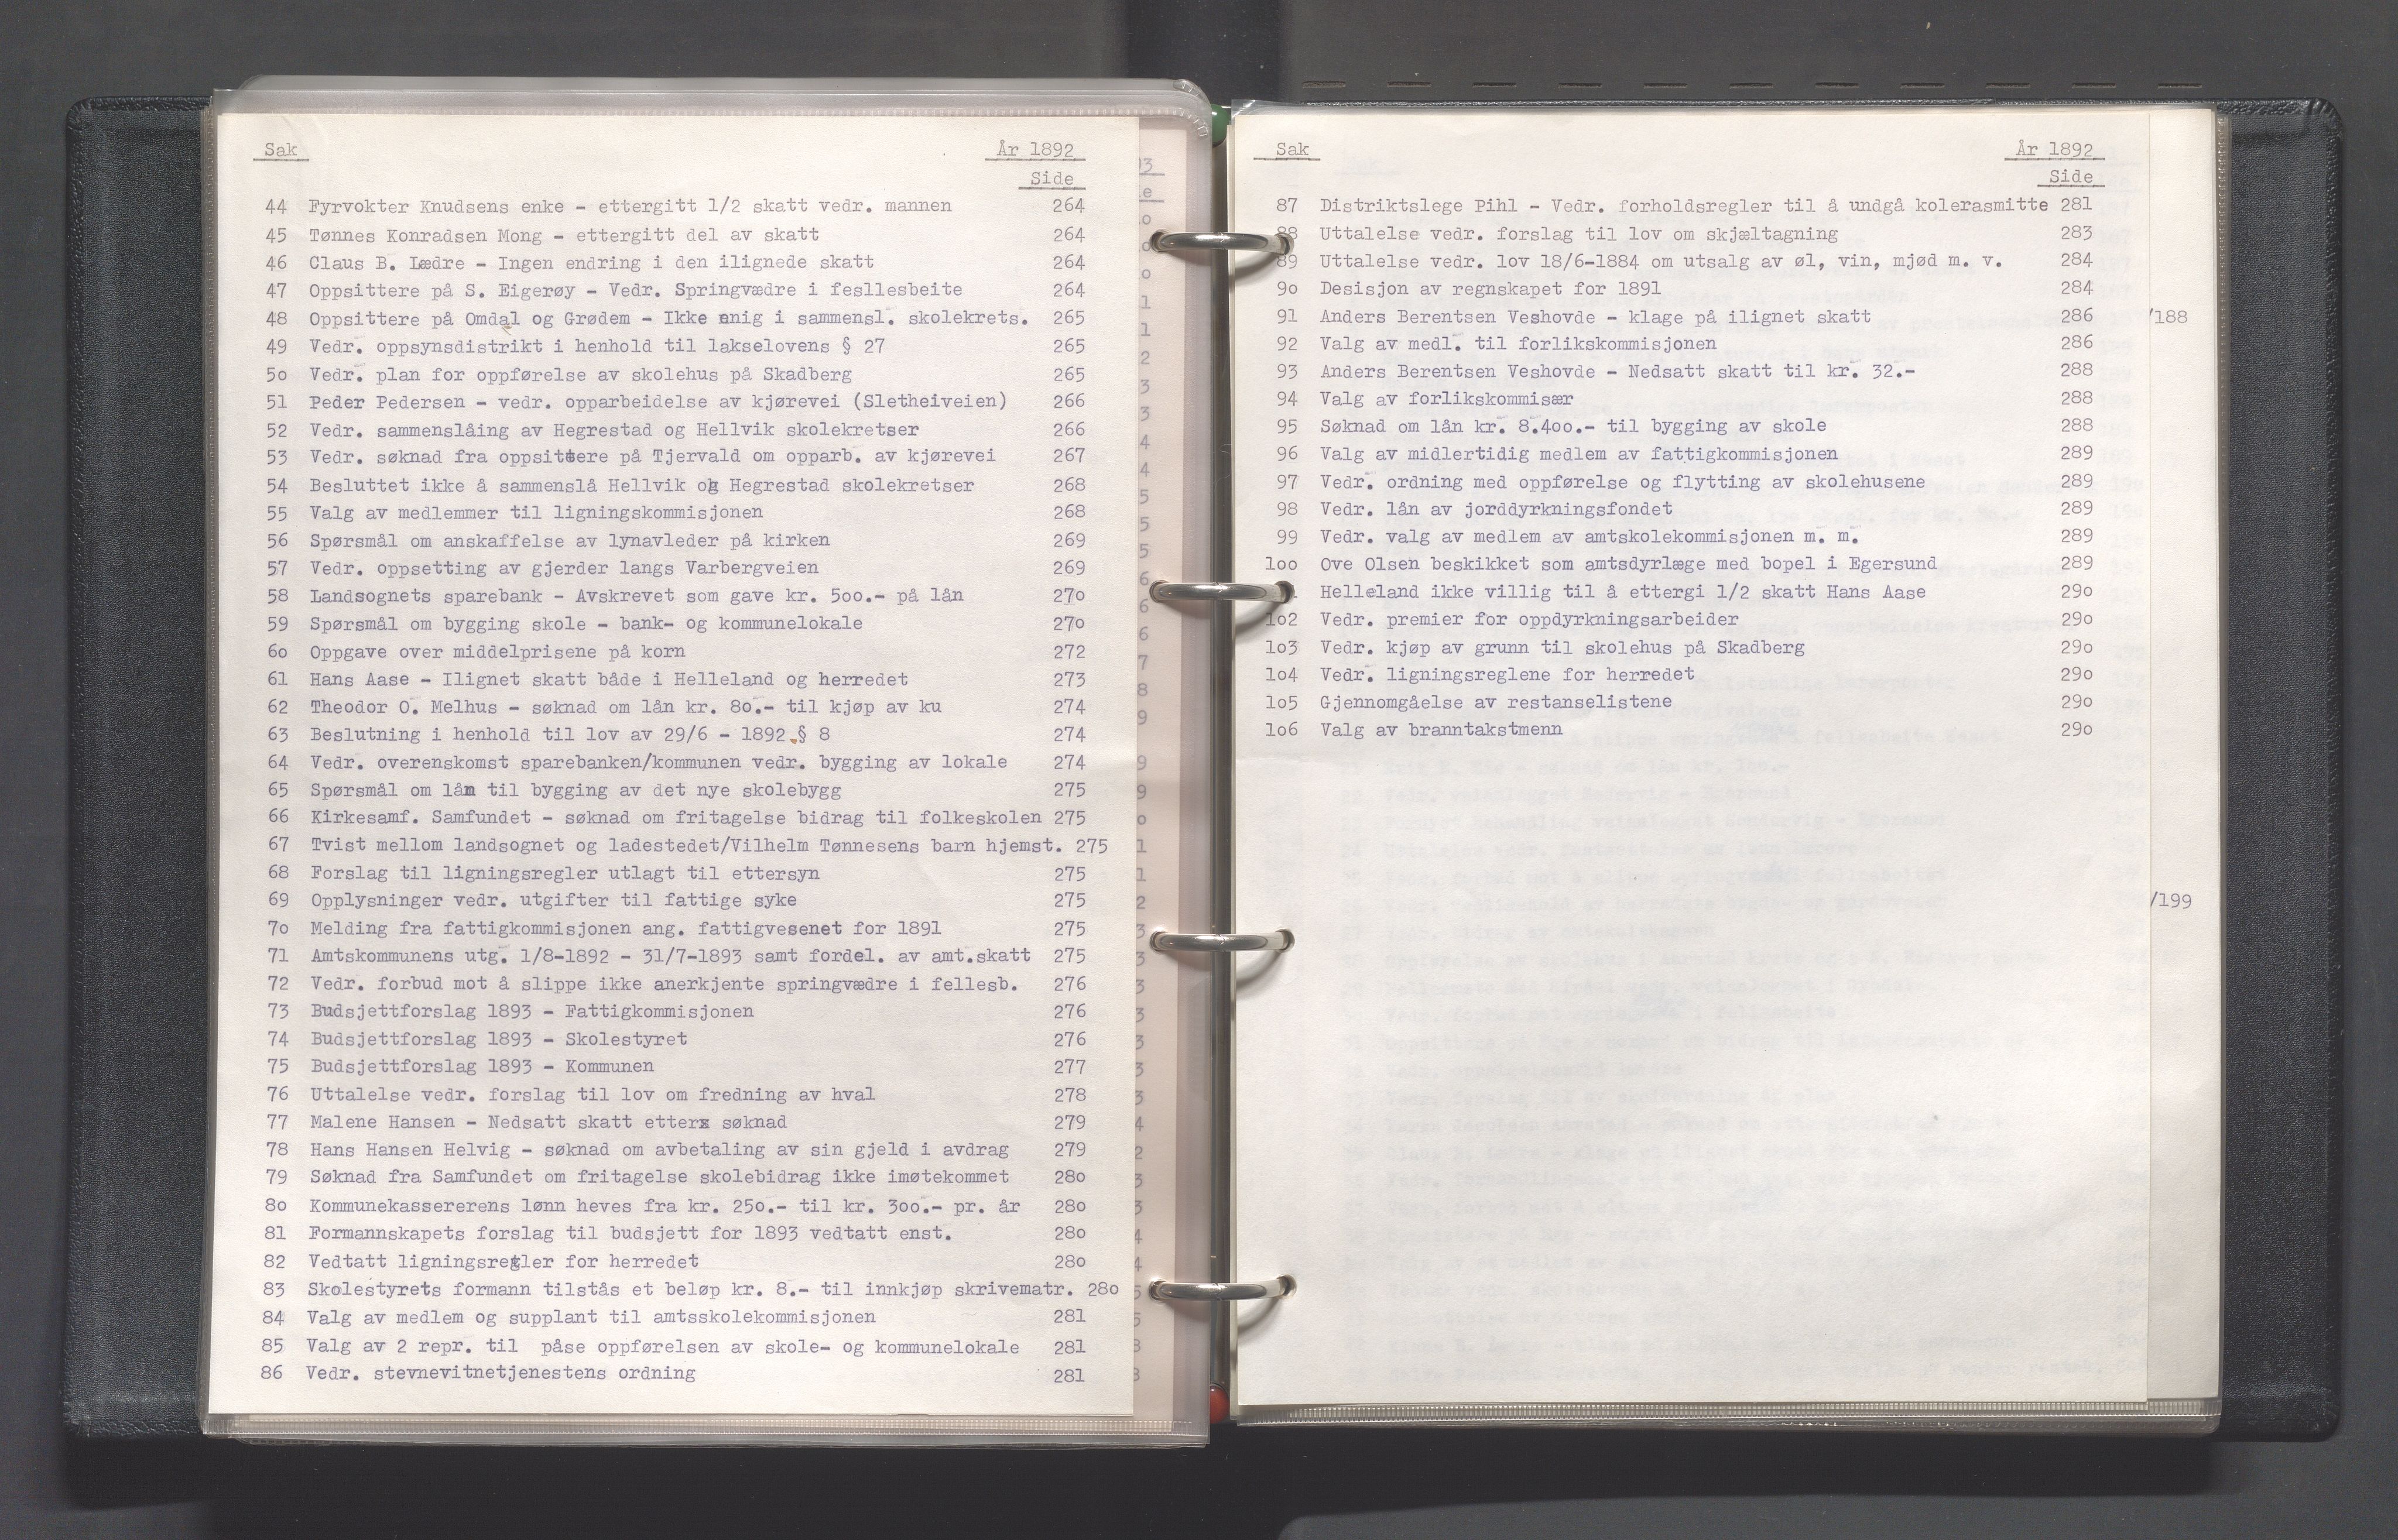 Sak År 1892
Side
44 Fyrvokter Knudsens enke - ettergitt 1/2 skatt vedr. mannen 264
45 Tønnes Konradsen Mong - ettergitt del av skatt 264
46 Claus B. Lædre - Ingen endring i den ilignede skatt 264
47 Oppsittere på S. Eigerøy - Vedr. Springvædre i fesllesbeite 264
48 Oppsittere på Omdal og Grødem - Ikke enig i sammensl. skolekrets. 265
49 Vedr. oppsynsdistrikt i henhold til lakselovens § 27 265
5o Vedr. plan for oppførelse av skolehus på Skadberg 265
51 Peder Pedersen - vedr. opparbeidelse av kjørevei (Sletheiveien) 266
52 Vedr. sammenslåing av Hegrestad og Hellvik skolekretser 266
53 Vedr. søknad fra oppsittere på Tjervald om opparb. av kjørevei 267
54 Besluttet ikke å sammenslå Hellvik og Hegrestad skolekretser 268
55 Valg av medlemmer til ligningskommisjonen 268
56 Spørsmål om anskaffelse av lynavleder på kirken 269
57 Vedr. oppsetting av gjerder langs Varbergveien 269
58 Landsognets sparebank - Avskrevet som gave kr. 5oo.- på lån 27o
59 Spørsmål om bygging skole - bank- og kommunelokale 27o
6o Oppgave over middelprisene på korn 272
61 Hans Aase - Ilignet skatt både i Helleland og herredet 273
62 Theodor O. Melhus - søknad om lån kr. 8o.- til kjøp av ku 274
63 Beslutning i henhold til lov av 29/6 - 1892 § 8 274
64 Vedr. overenskomst sparebanken/kommunen vedr. bygging av lokale 274
65 Spørsmål om lån til bygging av det nye skolebygg 275
66 Kirkesamf. Samfundet - søknad om fritagelse bidrag til folkeskolen 275
67 Tvist mellom landsognet og ladestedet/Vilhelm Tønnesens barn hjemst. 275
68 Forslag til ligningsregler utlagt til ettersyn 275
69 Opplysninger vedr. utgifter til fattige syke 275
7o Melding fra fattigkommisjonen ang. fattigvesenet for 1891 275
71 Amtskommunens utg. 1/8-1892 - 31/7-1893 samt fordel. av amt.skatt 275
72 Vedr. forbud mot å slippe ikke anerkjente springvædre i fellesb. 276
73 Budsjettforslag 1893 - Fattigkommisjonen 276
74 Budsjettforslag 1893 - Skolestyret 276
75 Budsjettforslag 1893 - Kommunen 277
76 Uttalelse vedr. forslag til lov om fredning av hval 278
77 Malene Hansen - Nedsatt skatt etterx søknad 279
78 Hans Hansen Helvig - søknad om avbetaling av sin gjeld i avdrag 279
79 Søknad fra Samfundet om fritagelse skolebidrag ikke imøtekommet 28o
8o Kommunekassererens lønn heves fra kr. 25o.- til kr. 3oo.- pr. år 28o
81 Formannskapets forslag til budsjett for 1893 vedtatt enst. 28o
82 Vedtatt ligningsregler for herredet 28o
83 Skolestyrets formann tilstås et beløp kr. 8.- til innkjøp skrivematr. 28o
84 Valg av medlem og supplant til amtsskolekommisjonen 281
85 Valg av 2 repr. til påse oppførelsen av skole- og kommunelokale 281
86 Vedr. stevnevitnetjenestens ordning 281
Sak År 1892
Side
87 Distriktslege Pihl - Vedr. forholdsregler til å undgå kolerasmitte 281
88 Uttalelse vedr. forslag til lov om skjæltagning 283
89 Uttalelse vedr. lov 18/6-1884 om utsalg av øl, vin, mjød m. v. 284
9o Desisjon av regnskapet for 1891 284
91 Anders Berentsen Veshovde - klage på ilignet skatt 286 /188
92 Valg av medl. til forlikskommisjonen 286
93 Anders Berentsen Veshovde - Nedsatt skatt til kr. 32.- 288
94 Valg av forlikskommisær 288
95 Søknad om lån kr. 8.4oo.- til bygging av skole 288
96 Valg av midlertidig medlem av fattigkommisjonen 289
97 Vedr. ordning med oppførelse og flytting av skolehusene 289
98 Vedr. lån av jorddyrkningsfondet 289
99 Vedr. valg av medlem av amtskolekommisjonen m. m. 289
loo Ove Olsen beskikket som amtsdyrlæge med bopel i Egersund 289
Helleland ikke villig til å ettergi 1/2 skatt Hans Aase 29o
lo2 Vedr. premier for oppdyrkningsarbeider 29o
lo3 Vedr. kjøp av grunn til skolehus på Skadberg 29o
lo4 Vedr. ligningsreglene for herredet 29o
lo5 Gjennomgåelse av restanselistene 29o
lo6 Valg av branntakstmenn 29o
/199